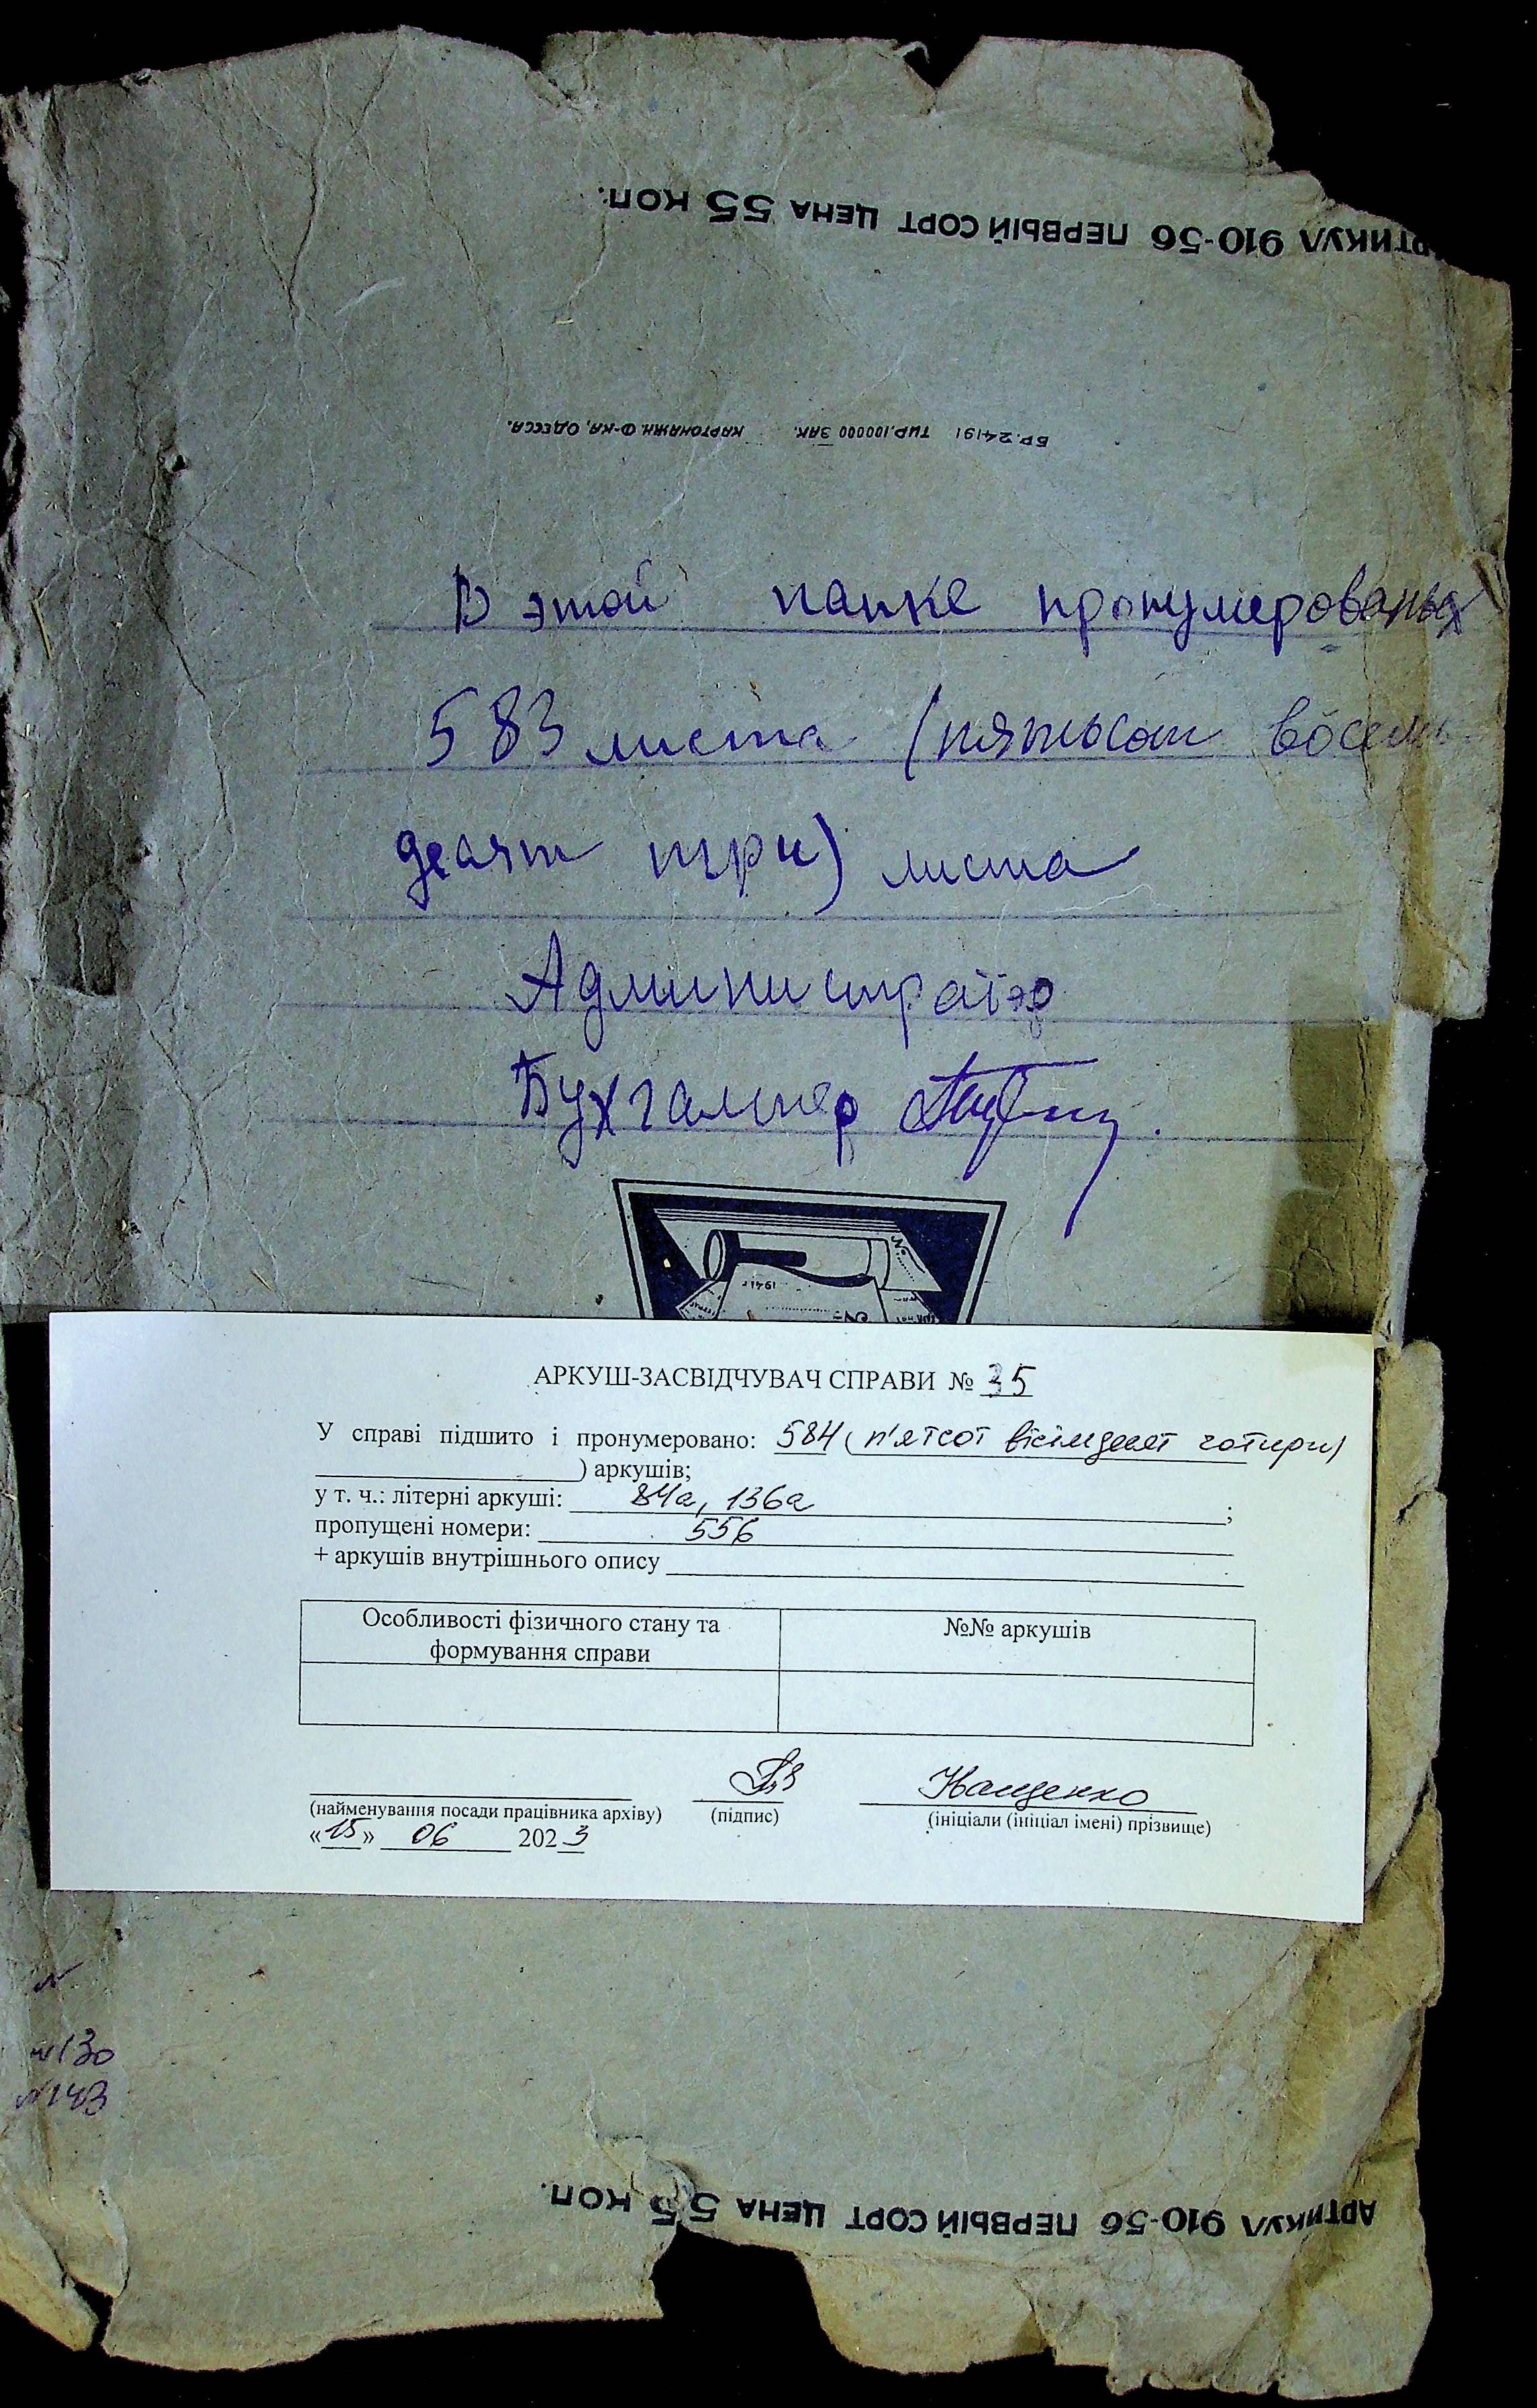 АРТИКУЛ 910-56 ПЕРВЫЙ СОРТ ЦЕНА 55 КОП.
БР.24191 ТИР.100000 ЗАК. КАРТОНАЖН. Ф-КА, ОДЕССА.
В этой папке пронумерованых
583 листа (пятьсот восемь
десят три) листа
Администратор
Бухгалтер
1941 г
АРКУШ-ЗАСВІДЧУВАЧ СПРАВИ № 35
У справі підшито і пронумеровано: 584 (п'ятсот вісімдесят чотири)
) аркушів;
у т. ч.: літерні аркуші: 84а, 136а ;
пропущені номери: 556
+ аркушів внутрішнього опису
Особливості фізичного стану та №№ аркушів
формування справи
Нащенко
(найменування посади працівника архіву) (підпис) (ініціали (ініціал імені) прізвище)
«15» 06 2023
№
№130
№143
АРТИКУЛ 910-56 ПЕРВЫЙ СОРТ ЦЕНА 55 КОП.